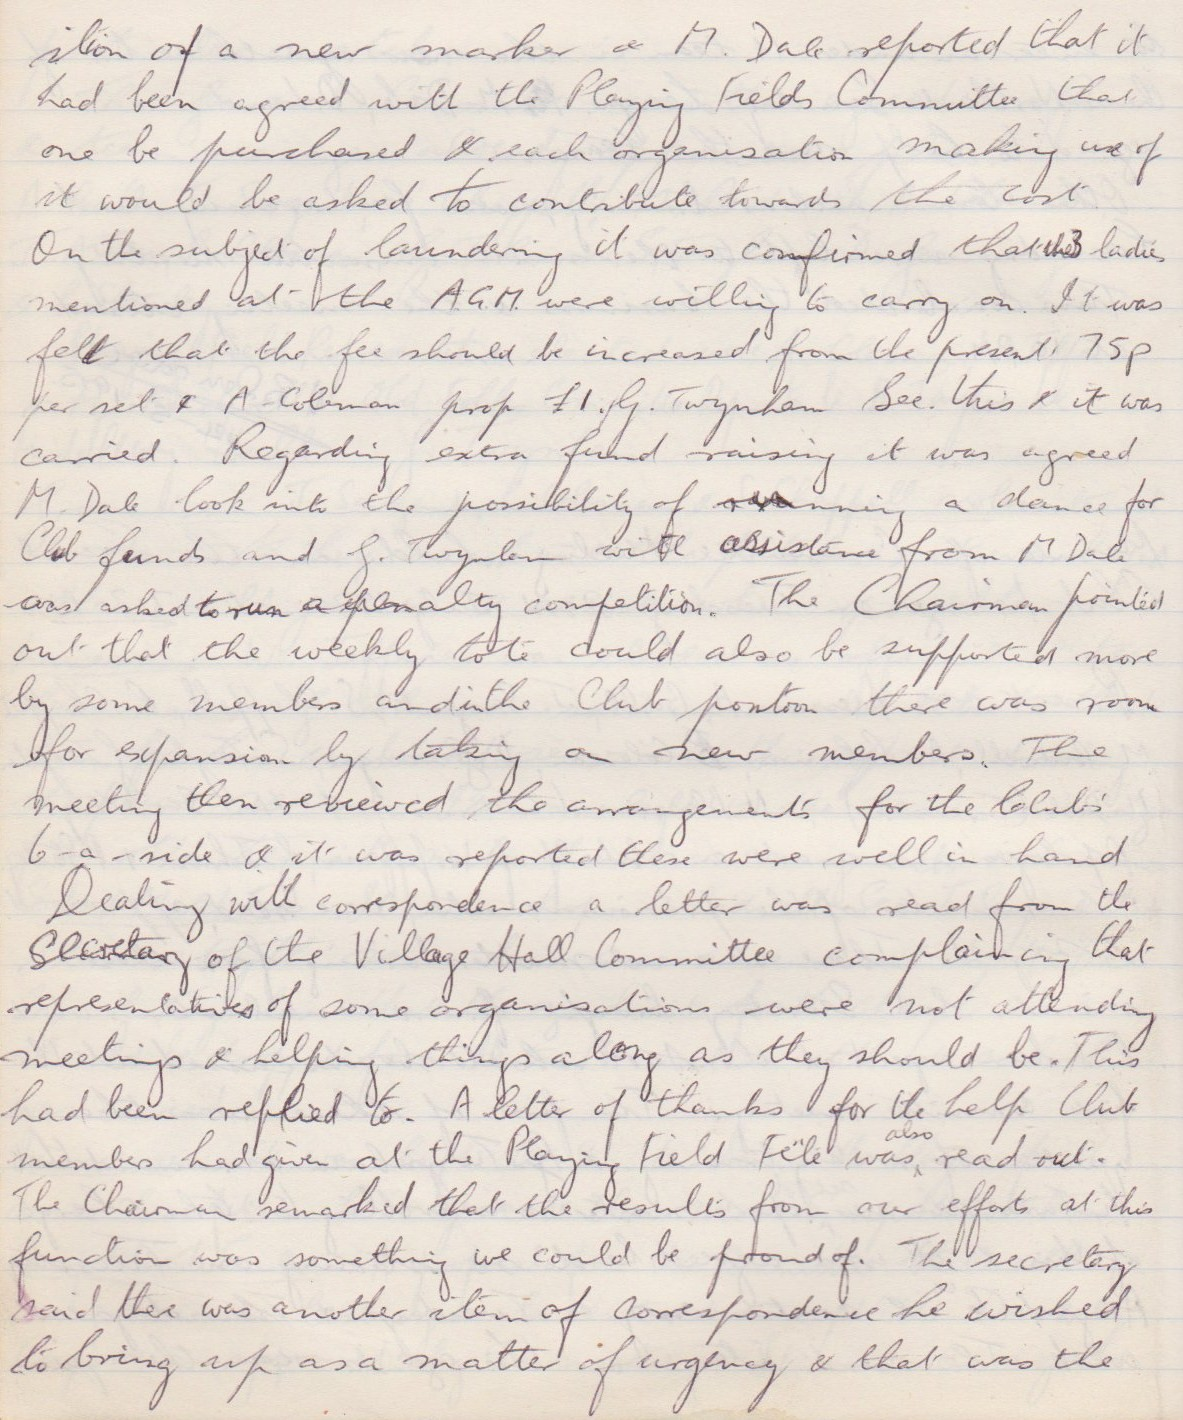 ition of a new marker & M. Dale reported that it
had been agreed with the Playing Fields Committee that
one be purchased & each organisation making use of
it would be asked to contribute towards the cost.
On the subject of laundering it was confirmed that the 3 ladies
mentioned at the A.G.M. were willing to carry on. It was
felt that the fee should be increased from the present 75p
per set & A Coleman prop £1. G. Twynham Sec. this & it was
carried. Regarding extra fund raising it was agreed
M. Dale look into the possibility of running a dance for
Club funds and G. Twynham with assistance from M Dale
was asked to run a penalty competition. The Chairman pointed
out that the weekly tote could also be supported more
by some members and in the Club pontoon there was room
for expansion by taking on new members. The
meeting then reviewed the arrangements for the Club's
6-a-side & it was reported these were well in hand
Dealing with correspondence a letter was read from the
Secretary of the Village Hall Committee complaining that
representatives of some organisations were not attending
meetings & helping things along as they should be. This
had been replied to. A letter of thanks for the help Club
members had given at the Playing Field Fête was also read out.
The Chairman remarked that the results from our efforts at this
function was something we could be proud of. The secretary
said there was another item of correspondence he wished
to bring up as a matter of urgency & that was the